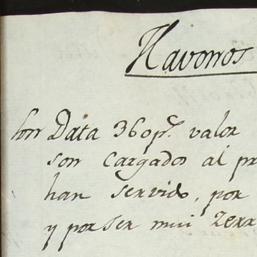 Havonos
Data 360 pˢ. valor
son cargados al pr
han servido, por
y por ser mui zerr